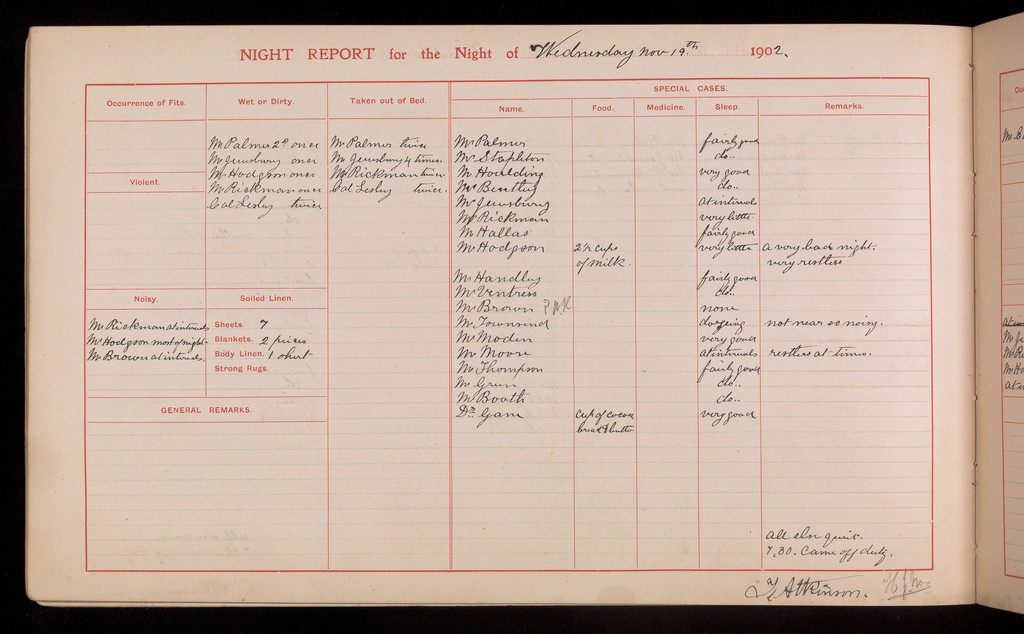 NIGHT REPORT for the Night of Wednesday Nov 19th 1902.
Occurrence of Fits.
Wet or Dirty.
Taken out of Bed.
SPECIAL CASES.
Name. Food. Medicine. Sleep. Remarks.
Mr Palmer 2° once
Mr Jewsbury once
Mr Hodgson once
Mr Rickman once
Col Lesley twice
Mr Palmer twice
Mr Jewsbury 4 times.
Mr Rickman twice
Col Lesley twice.
Violent.
Noisy.
Mr Rickman at intervals
Mr Hodgson most of night
Mr Brown at intervals
Soiled Linen.
Sheets. 7
Blankets. 2 pieces
Body Linen. 1 shirt
Strong Rugs.
GENERAL REMARKS.
Mr Palmer fairly good
Mr Stapleton do..
Mr Houlding very good
Mr Bentley do..
Mr Jewsbury at intervals
Mr Rickman very little
Mr Hallas fairly good
Mr Hodgson 2½ cups very little a very bad night.
of milk. very restless
Mr Handley fairly good
Mr Ventress do..
Mr Brown none
Mr Townsend dozeing not near so noisy.
Mr Moden very good
Mr Moore at intervals restless at times.
Mr Thompson fairly good
Mr Green do..
Mr Booth do..
Dr. Gane cup of cocoa very good
bread & butter
All else quiet.
7.30. Came off duty.
Atkinson.